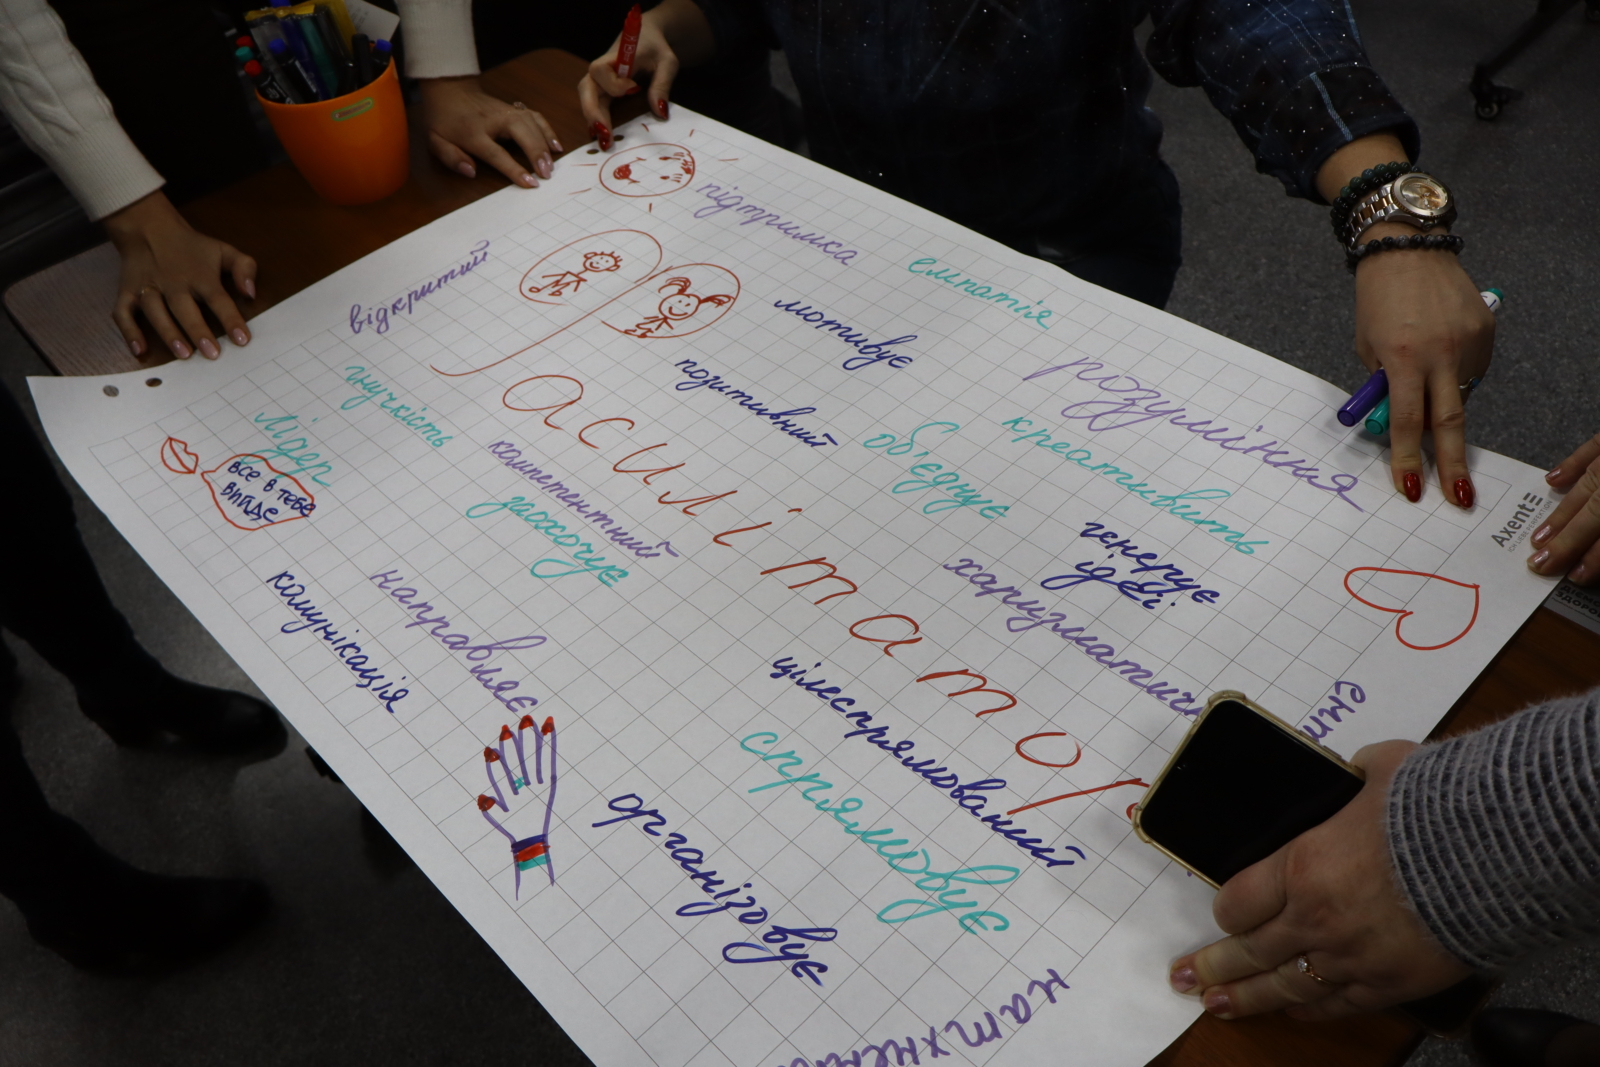 підтримка
емпатія
відкритий
мотивує
розуміння
позитивний
креативить
гнучкість
об'єднує
Лідер
Фасилітатор
компетентний
генерує
ідеї
ВСЕ В ТЕБЕ
ВИЙДЕ
заохочує
харизматичн
Axent
направляє
комунікація
цілеспрямований
спрямовує
організовує